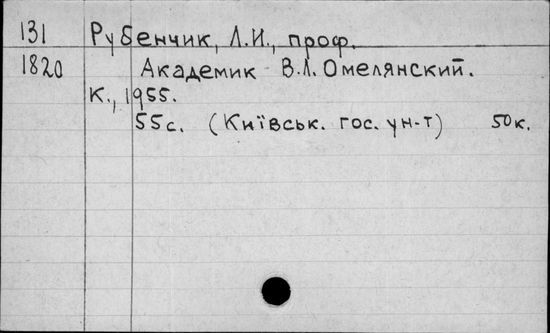 131 Рубенчик, Л.И., проф.
1820 Академик В.Л. Омелянский.
К., 1955.
55с. (Київськ. гос. ун-т) 50к.